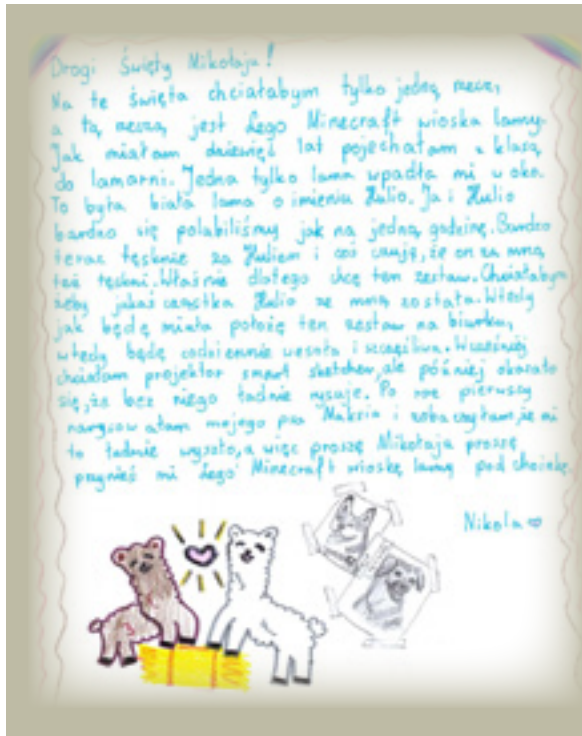 Drogi Święty Mikołaju!
Na te święta chciałabym tylko jedną rzecz,
a tą rzeczą jest Lego Minecraft wioska lamy.
Jak miałam dziewięć lat pojechałam z klasą
do lamarni. Jedna tylko lama wpadła mi w oko.
To była biała lama o imieniu Hulio. Ja i Hulio
bardzo się polubiliśmy jak na jedną godzinę. Bardzo
teraz tęsknie za Huliem i coś czuję, że on za mną
też tęskni. Właśnie dlatego chcę ten zestaw. Chciałabym
żeby jakaś cząstka Hulio ze mną została. Wtedy
jak będę miała położę ten zestaw na biurku,
wtedy będę codziennie wesoła i szczęśliwa. Wcześniej
chciałam projektor smart sketcher, ale później okazało
się, że bez niego ładnie rysuję. Po raz pierwszy
narysowałam mojego psa Maksia i zobaczyłam, że mi
to ładnie wyszło, a więc proszę Mikołaja proszę
przynieś mi Lego Minecraft wioskę lamy pod choinkę.
Nikola